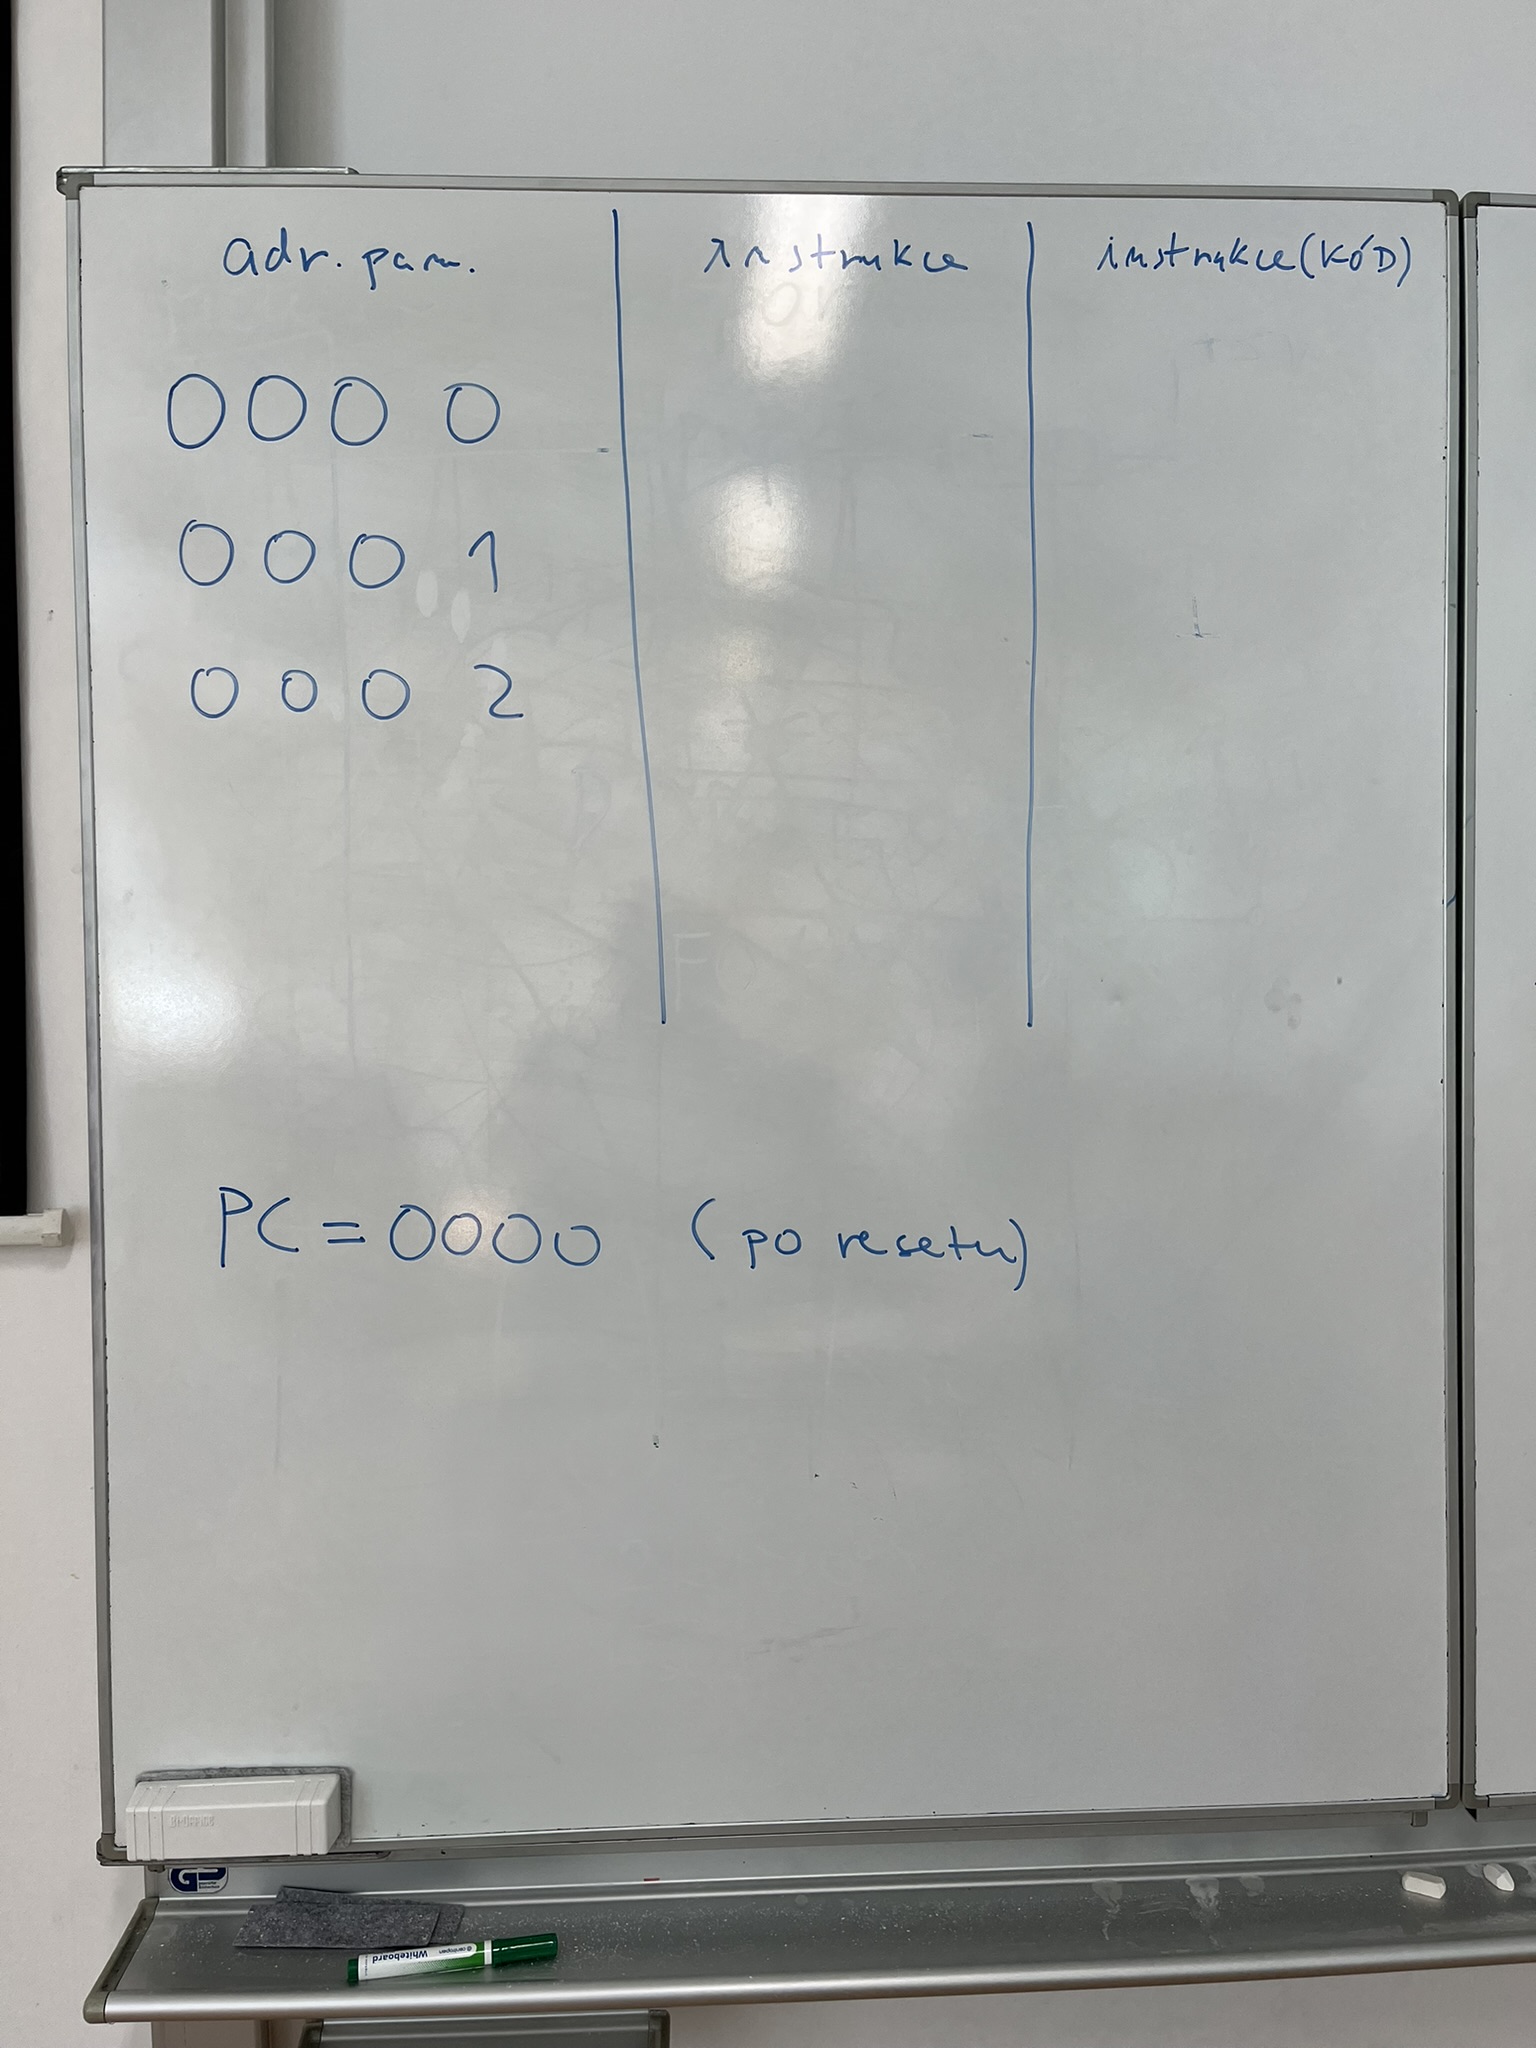 adr. pam. instrukce instrukce (KÓD)
0000
0001
0002
PC = 0000 (po resetu)
BI-OFFICE
centropen
Whiteboard